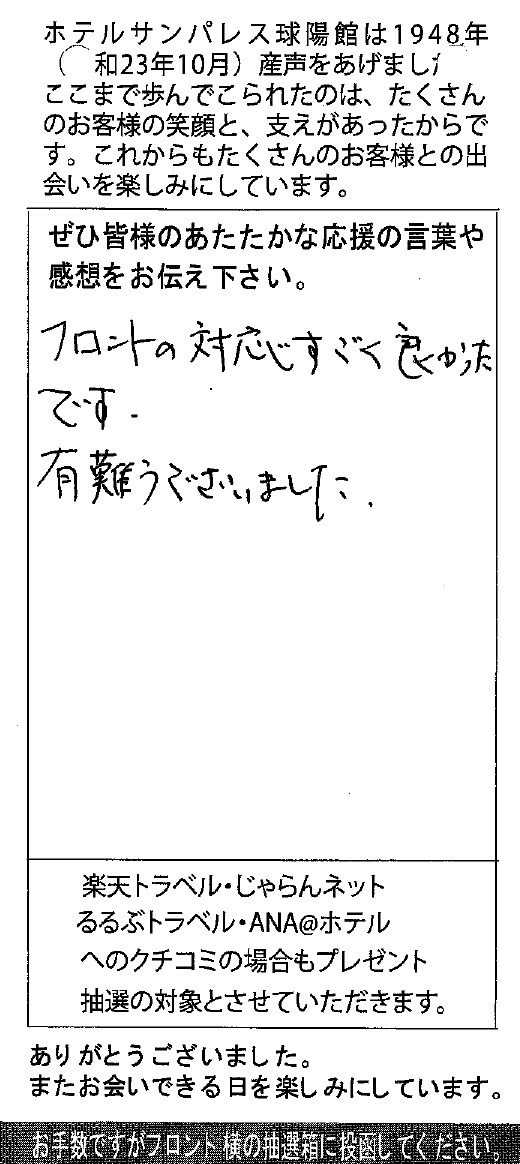 ホテルサンパレス球陽館は1948年
（ 和23年10月）産声をあげまし
ここまで歩んでこられたのは、たくさん
のお客様の笑顔と、支えがあったからで
す。これからもたくさんのお客様との出
会いを楽しみにしています。
ぜひ皆様のあたたかな応援の言葉や
感想をお伝え下さい。
フロントの対応すごく良くかった
です.
有難うございました.
楽天トラベル・じゃらんネット
るるぶトラベル・ANA@ホテル
へのクチコミの場合もプレゼント
抽選の対象とさせていただきます。
ありがとうございました。
またお会いできる日を楽しみにしています。
お手数ですがフロント横の抽選箱に投函してください。